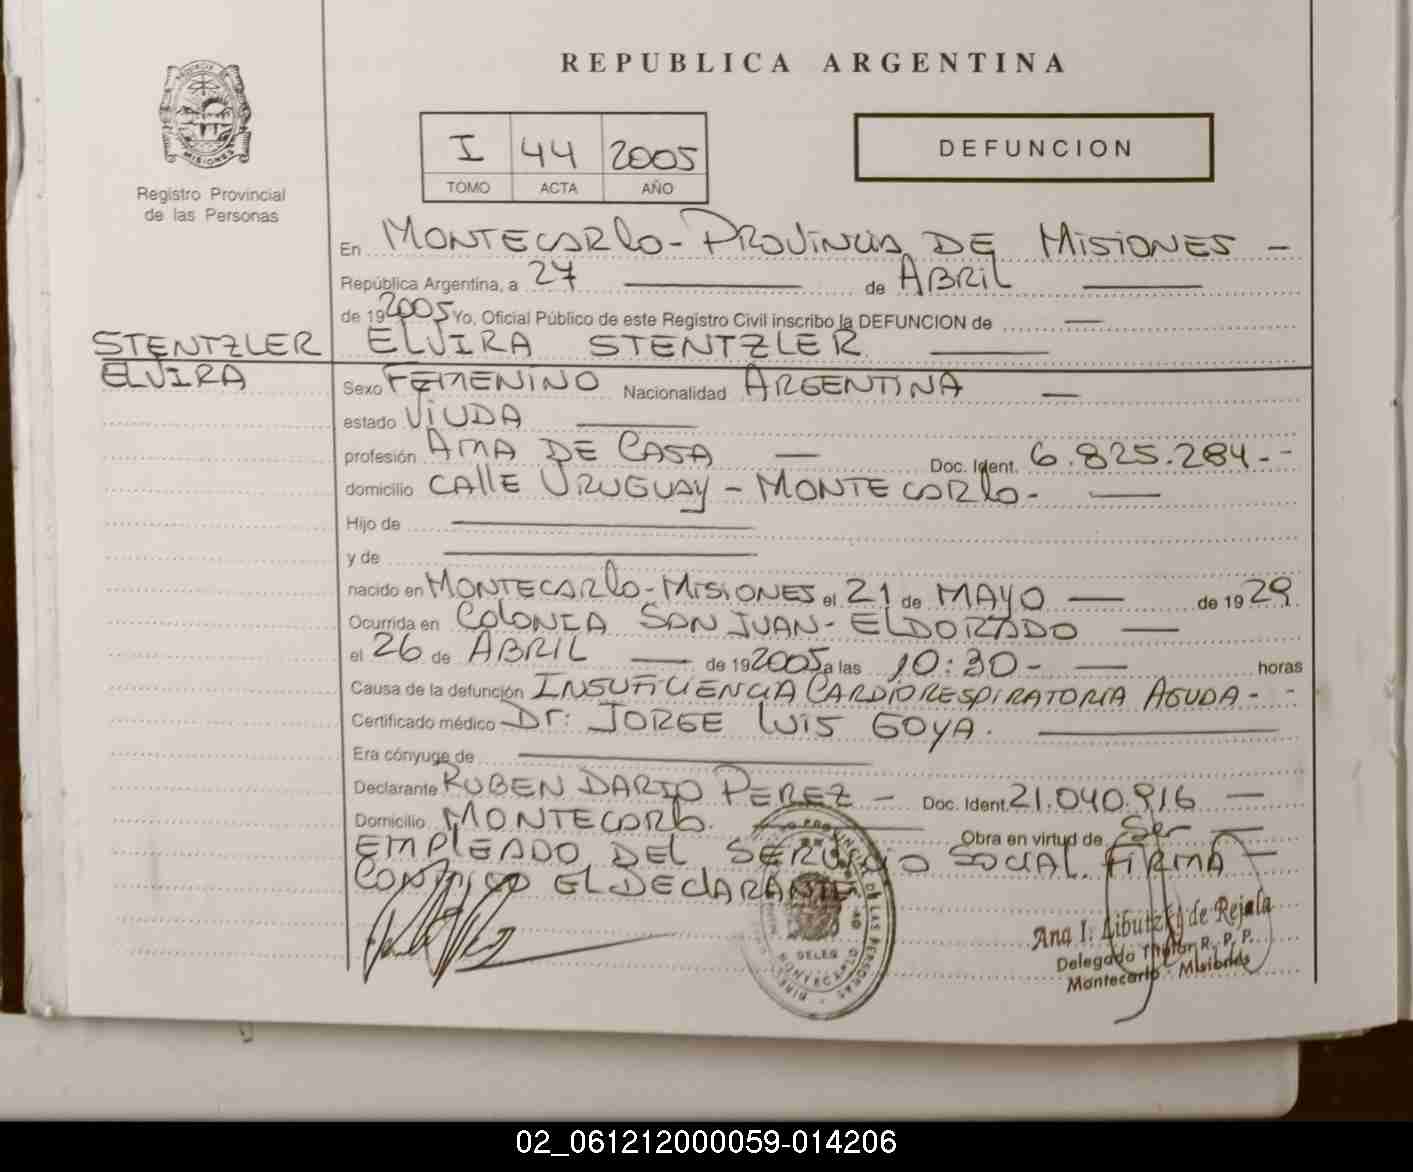 REPUBLICA ARGENTINA
I 44 2005
TOMO ACTA AÑO
DEFUNCION
MISIONES
Registro Provincial
de las Personas
En MONTECARLO - PROVINCIA DE MISIONES -
República Argentina, a 27 de ABRIL
de 192005 Yo, Oficial Público de este Registro Civil inscribo la DEFUNCION de
STENTZLER ELVIRA STENTZLER
ELVIRA
Sexo FEMENINO Nacionalidad ARGENTINA
estado VIUDA
profesión AMA DE CASA Doc. Ident. 6.825.284.--
domicilio CALLE URUGUAY - MONTECARLO-
Hijo de
y de
nacido en MONTECARLO - MISIONES el 21 de MAYO de 1929
Ocurrida en COLONIA SAN JUAN - ELDORADO
el 26 de ABRIL de 192005 a las 10:30- horas
Causa de la defunción INSUFICIENCIA CARDIORESPIRATORIA AGUDA - -
Certificado médico Dr: JORGE LUIS GOYA.
Era cónyuge de
Declarante RUBEN DARIO PEREZ - Doc. Ident. 21.040.916
Domicilio MONTECARLO. Obra en virtud de Ser
EMPLEADO DEL SERVICIO SOCIAL. FIRMA
CONMIGO EL DECLARANTE
DE LAS PERSONAS
DELEG
MONTECARLO
Ana I. Libutzki de Rejala
Delegado Titular R. P. P.
Montecarlo - Misiones
02_061212000059-014206